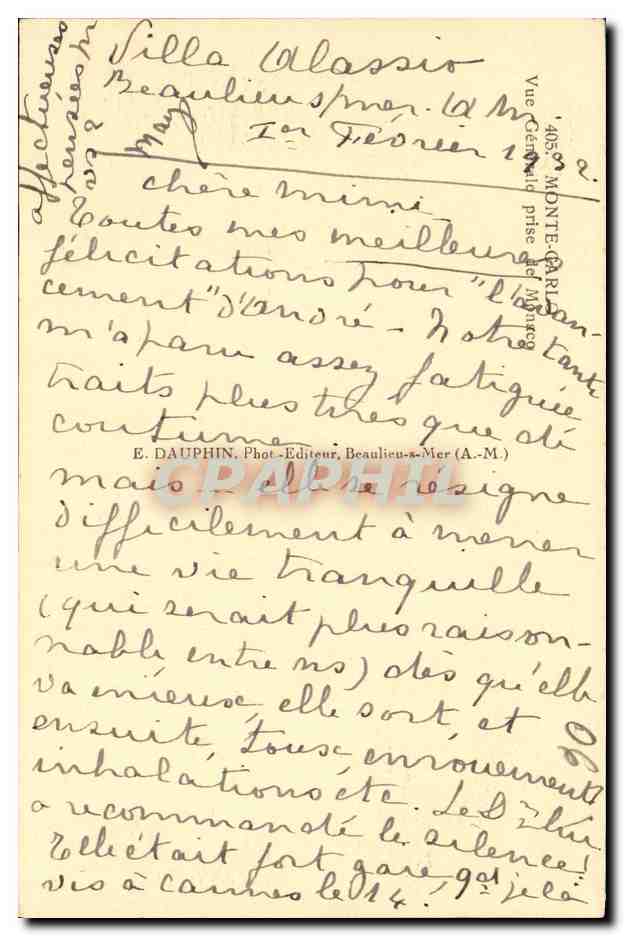 Villa Alassio
Beaulieu s/mer. A M
Ier Février 19
chère mimi
Toutes mes meilleures
félicitations pour "l'avan-
cement" d'André - Notre tante
m'a paru assez fatiguée
traits plus tirés que de
coutume
mais - elle se résigne
difficilement à mener
une vie tranquille
(qui serait plus raison-
nable, entre ns) dès qu'elle
va mieux, elle sort, et
ensuite, toux, enrouements
inhalations etc. Le Dr lui
a recommandé le silence!
Elle était fort gaie, qd je la
vis à Cannes le 14.
affectueuses
pensées pr
vs 2
May
405. MONTE-CARLO
Vue Générale prise de Monaco
E. DAUPHIN, Phot.-Editeur, Beaulieu-s-Mer (A.-M.)
CPAPHIL